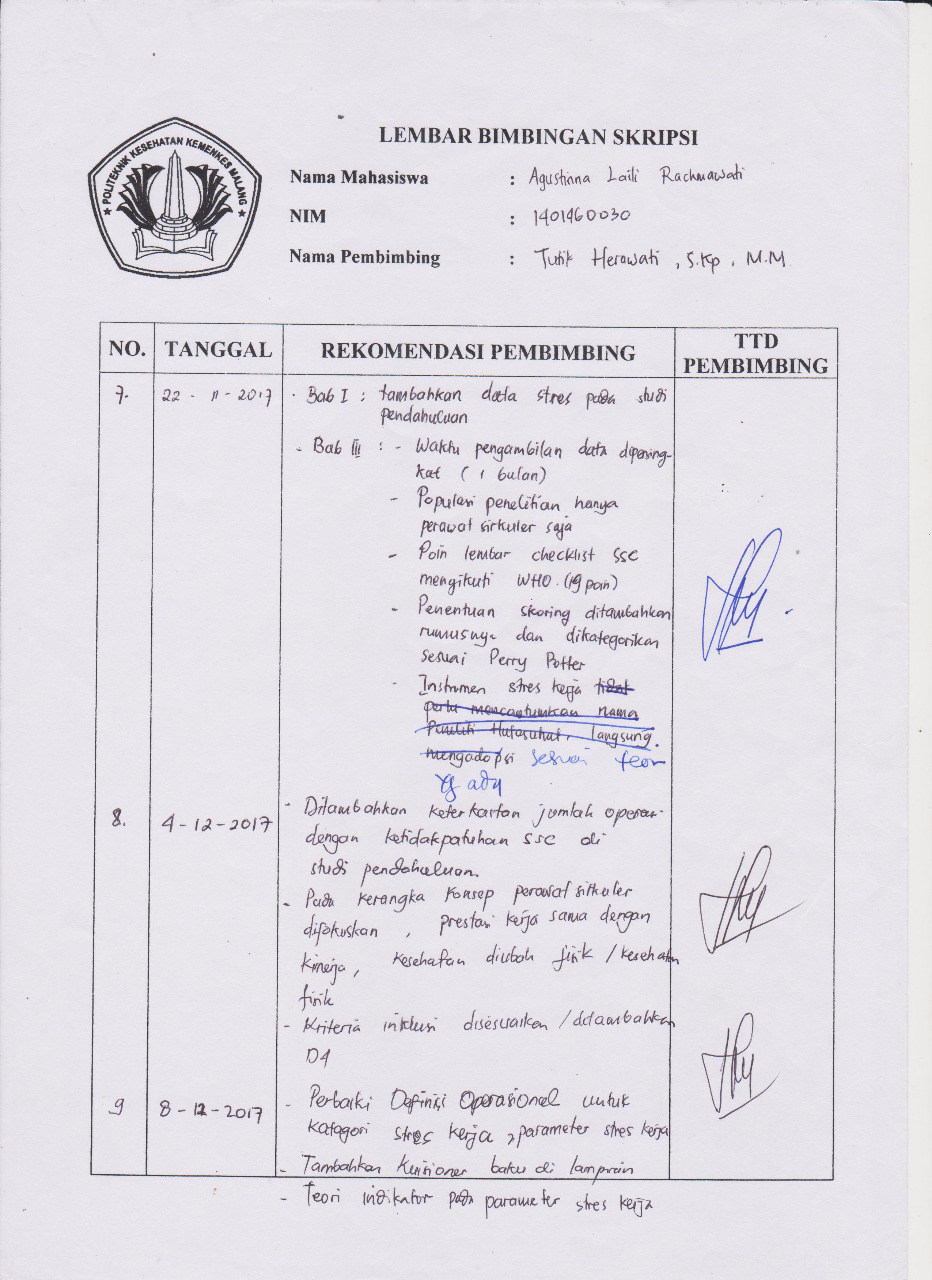 POLITEKNIK KESEHATAN KEMENKES MALANG
LEMBAR BIMBINGAN SKRIPSI
Nama Mahasiswa : Agustinna Laili Rachmawati
NIM : 1401460030
Nama Pembimbing : Tutik Herawati, S.Kp, M.M
NO. TANGGAL REKOMENDASI PEMBIMBING TTD PEMBIMBING
7. 22 - 11 - 2017 - Bab I : tambahkan data stres pada studi
pendahuluan
- Bab III : - Waktu pengambilan data dipersing-
kat (1 bulan)
- Populasi penelitian hanya
perawat sirkuler saja
- Poin lembar checklist SSC
mengikuti WHO. (19 poin)
- Penentuan skoring ditambahkan
rumusnya dan dikategorikan
sesuai Perry Potter
- Instrumen stres kerja tidak
perlu mencantumkan nama
Peneliti Hutasuhut, langsung
mengadopsi sesuai teori
yg ada
8. 4-12-2017 - Ditambahkan keterkaitan jumlah operasi
dengan ketidakpatuhan SSC di
studi pendahuluan.
- Pada kerangka konsep perawat sirkuler
difokuskan, prestasi kerja sama dengan
kinerja, kesehatan diubah fisik / kesehatan
fisik
- Kriteria inklusi disesuaikan / ditambahkan
D4
9 8-12-2017 - Perbaiki Definisi Operasional untuk
kategori stres kerja, parameter stres kerja
- Tambahkan Kuisioner baku di lampiran
- Teori indikator pada parameter stres kerja